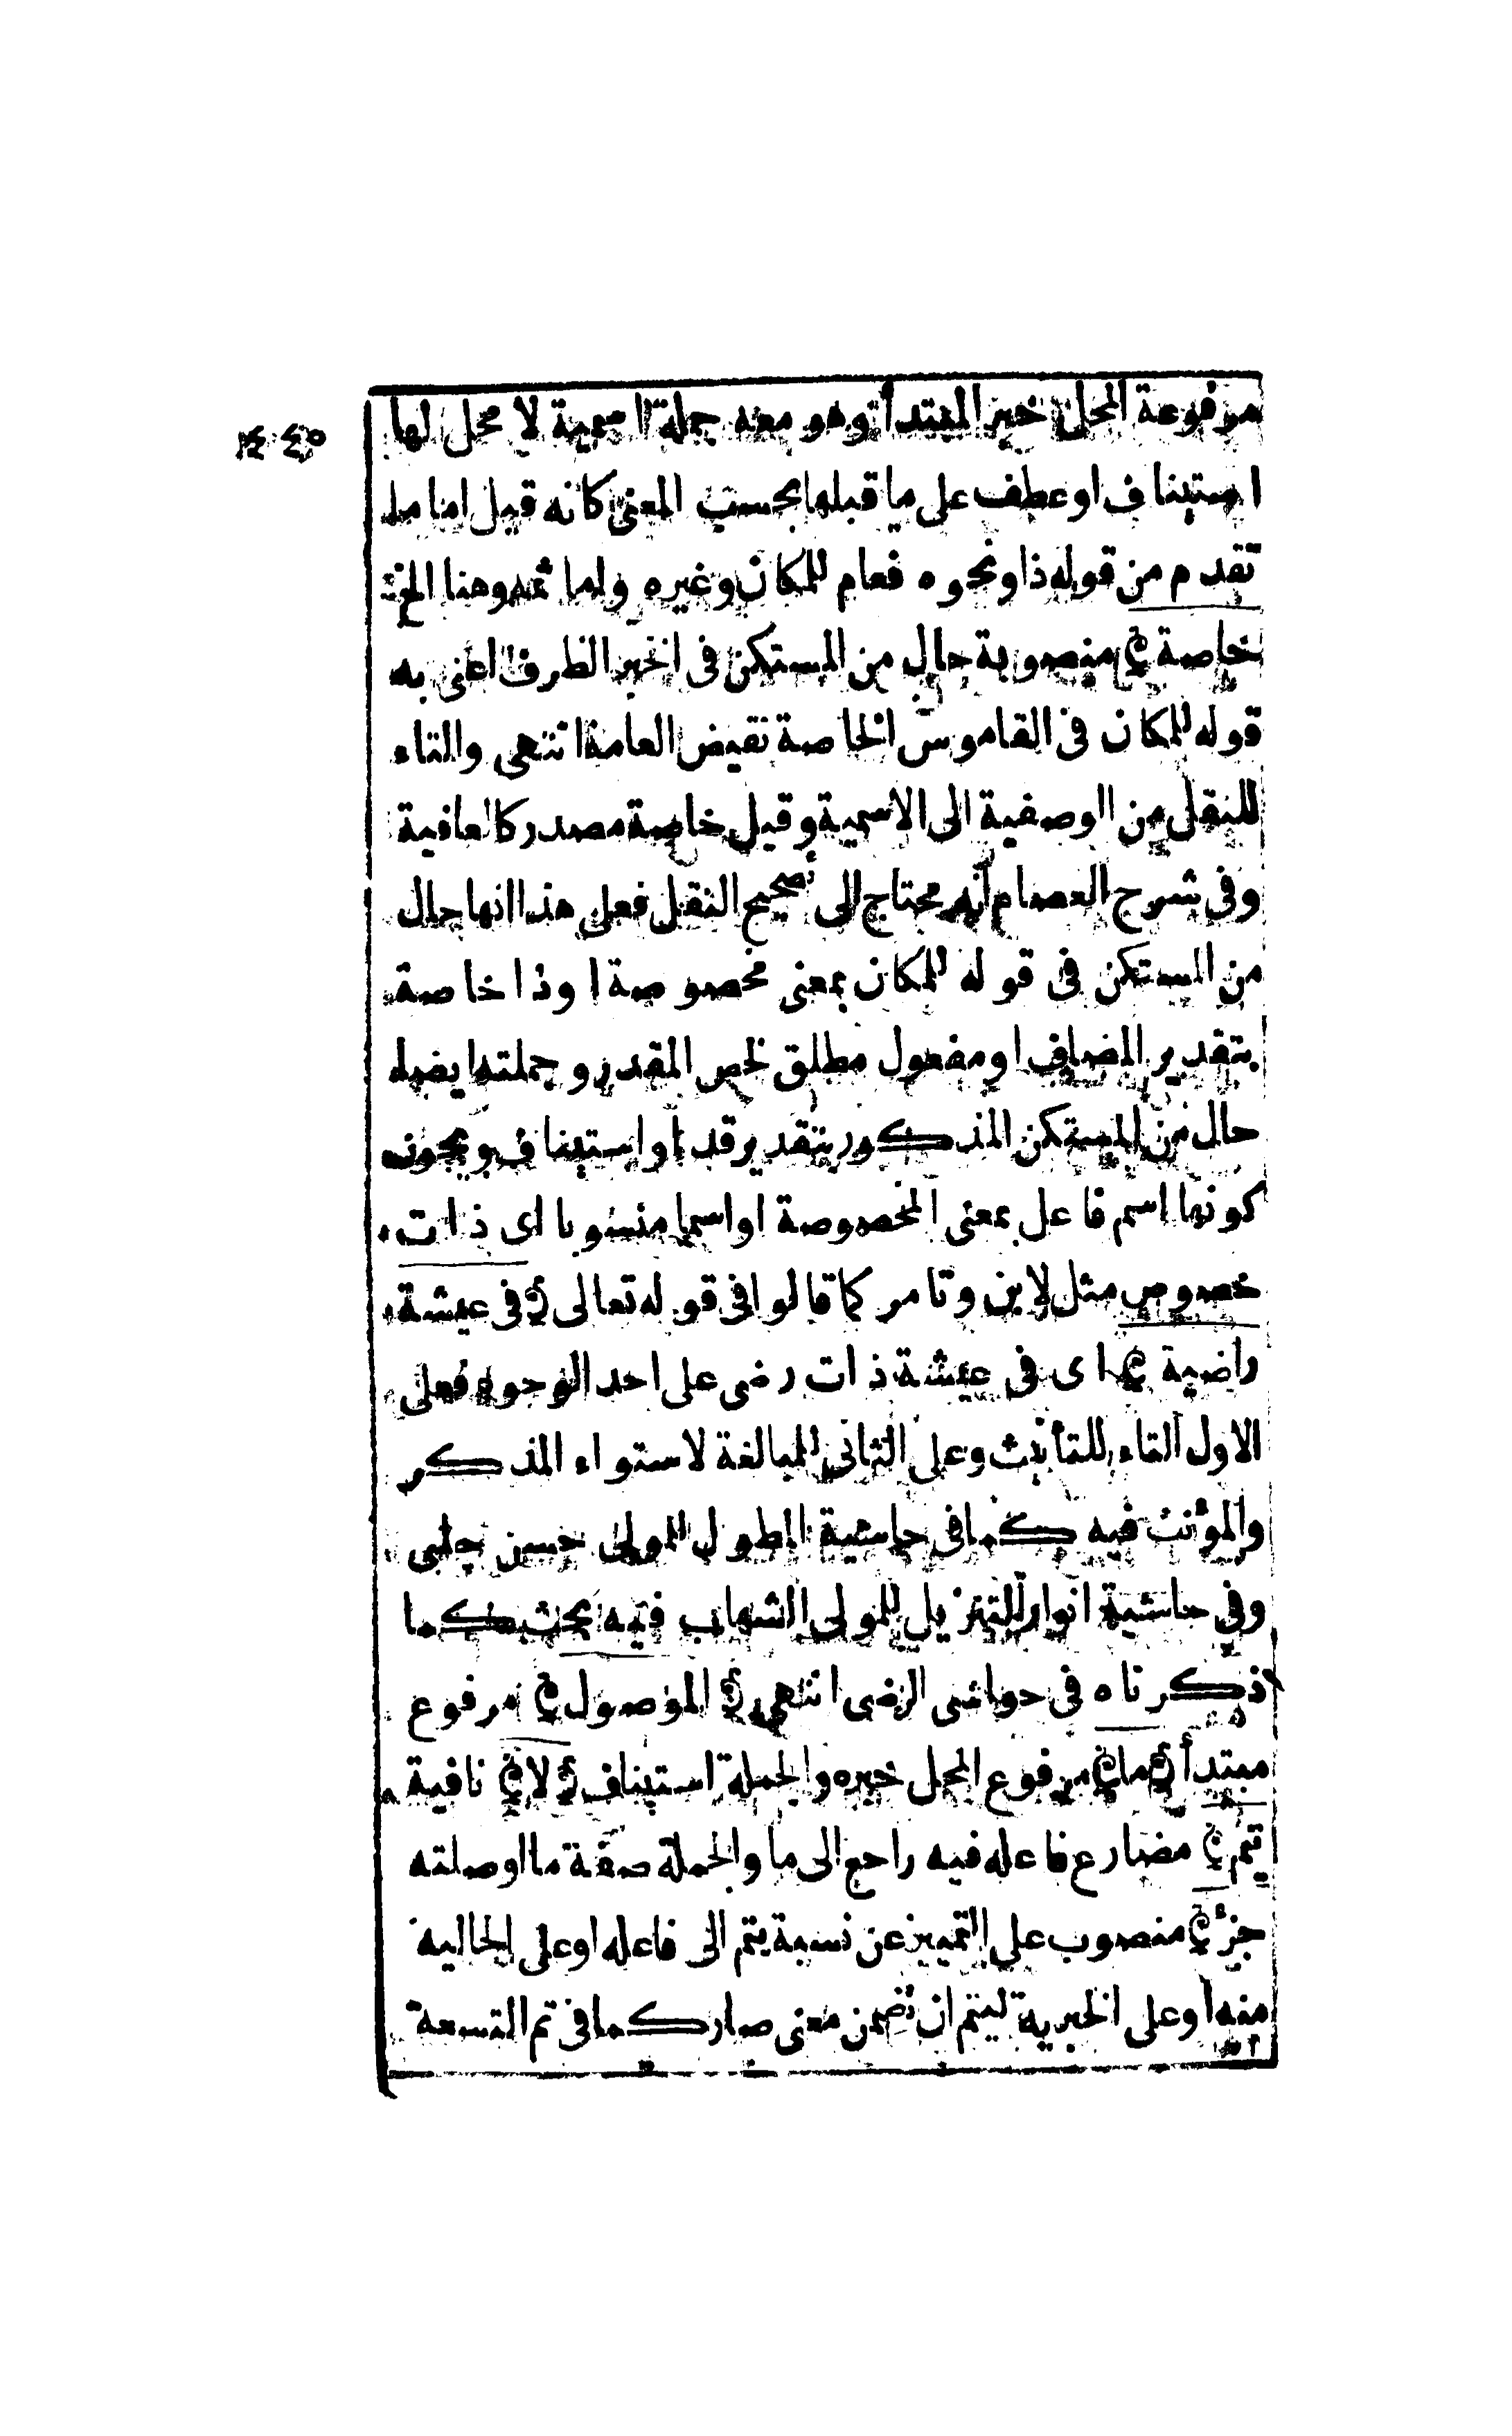 مرفوعة المحل خبر المبتدأ وهو معه جملة اسمية لا محل لها
استيناف او عطف على ما قبلها بحسب المعنى كانه قيل اما ما
تقدم من قوله ذا ونحوه فعام للمكان وغيره واما ثمه وهنا الخ
خاصة ﴾ منصوبة حال من المستكن فى الخبر الظرف اعنى به
قوله للمكان فى القاموس الخاصة نقيض العامة انتهى والتاء
للنقل من الوصفية الى الاسمية وقيل خاصة مصدر كالعافية
وفى شرح العصام انه محتاج الى تصحيح النقل فعلى هذا انها حال
من المستكن فى قوله للمكان بمعنى مخصوصة او ذا خاصة
بتقدير المضاف او مفعول مطلق لخص المقدر وجملته ايضا
حال من المستكن المذكور بتقدير قد او استيناف ويجوز
كونها اسم فاعل بمعنى المخصوصة او اسما منسوبا اى ذات
خصوص مثل لابن وتامر كما قالوا فى قوله تعالى ﴿ فى عيشة
راضية ﴾ اى فى عيشة ذات رضى على احد الوجوه فعلى
الاول التاء للتأنيث وعلى الثانى للمبالغة لاستواء المذكر
والمؤنث فيه كما فى حاشية المطول للمولى حسن چلبى
وفى حاشية انوار التنزيل للمولى الشهاب فيه بحث كما
ذكرناه فى حواشى الرضى انتهى ﴿ الموصول ﴾ مرفوع
مبتدأ ﴿ ما ﴾ مرفوع المحل خبره والجملة استيناف ﴿ لا ﴾ نافية
يتم ﴾ مضارع فاعله فيه راجع الى ما والجملة صفة ما او صلته
جزئ ﴾ منصوب على التمييز عن نسبة يتم الى فاعله او على الحالية
منه او على الخبرية ليتم ان تضمن معنى صار كما فى تم التسعة